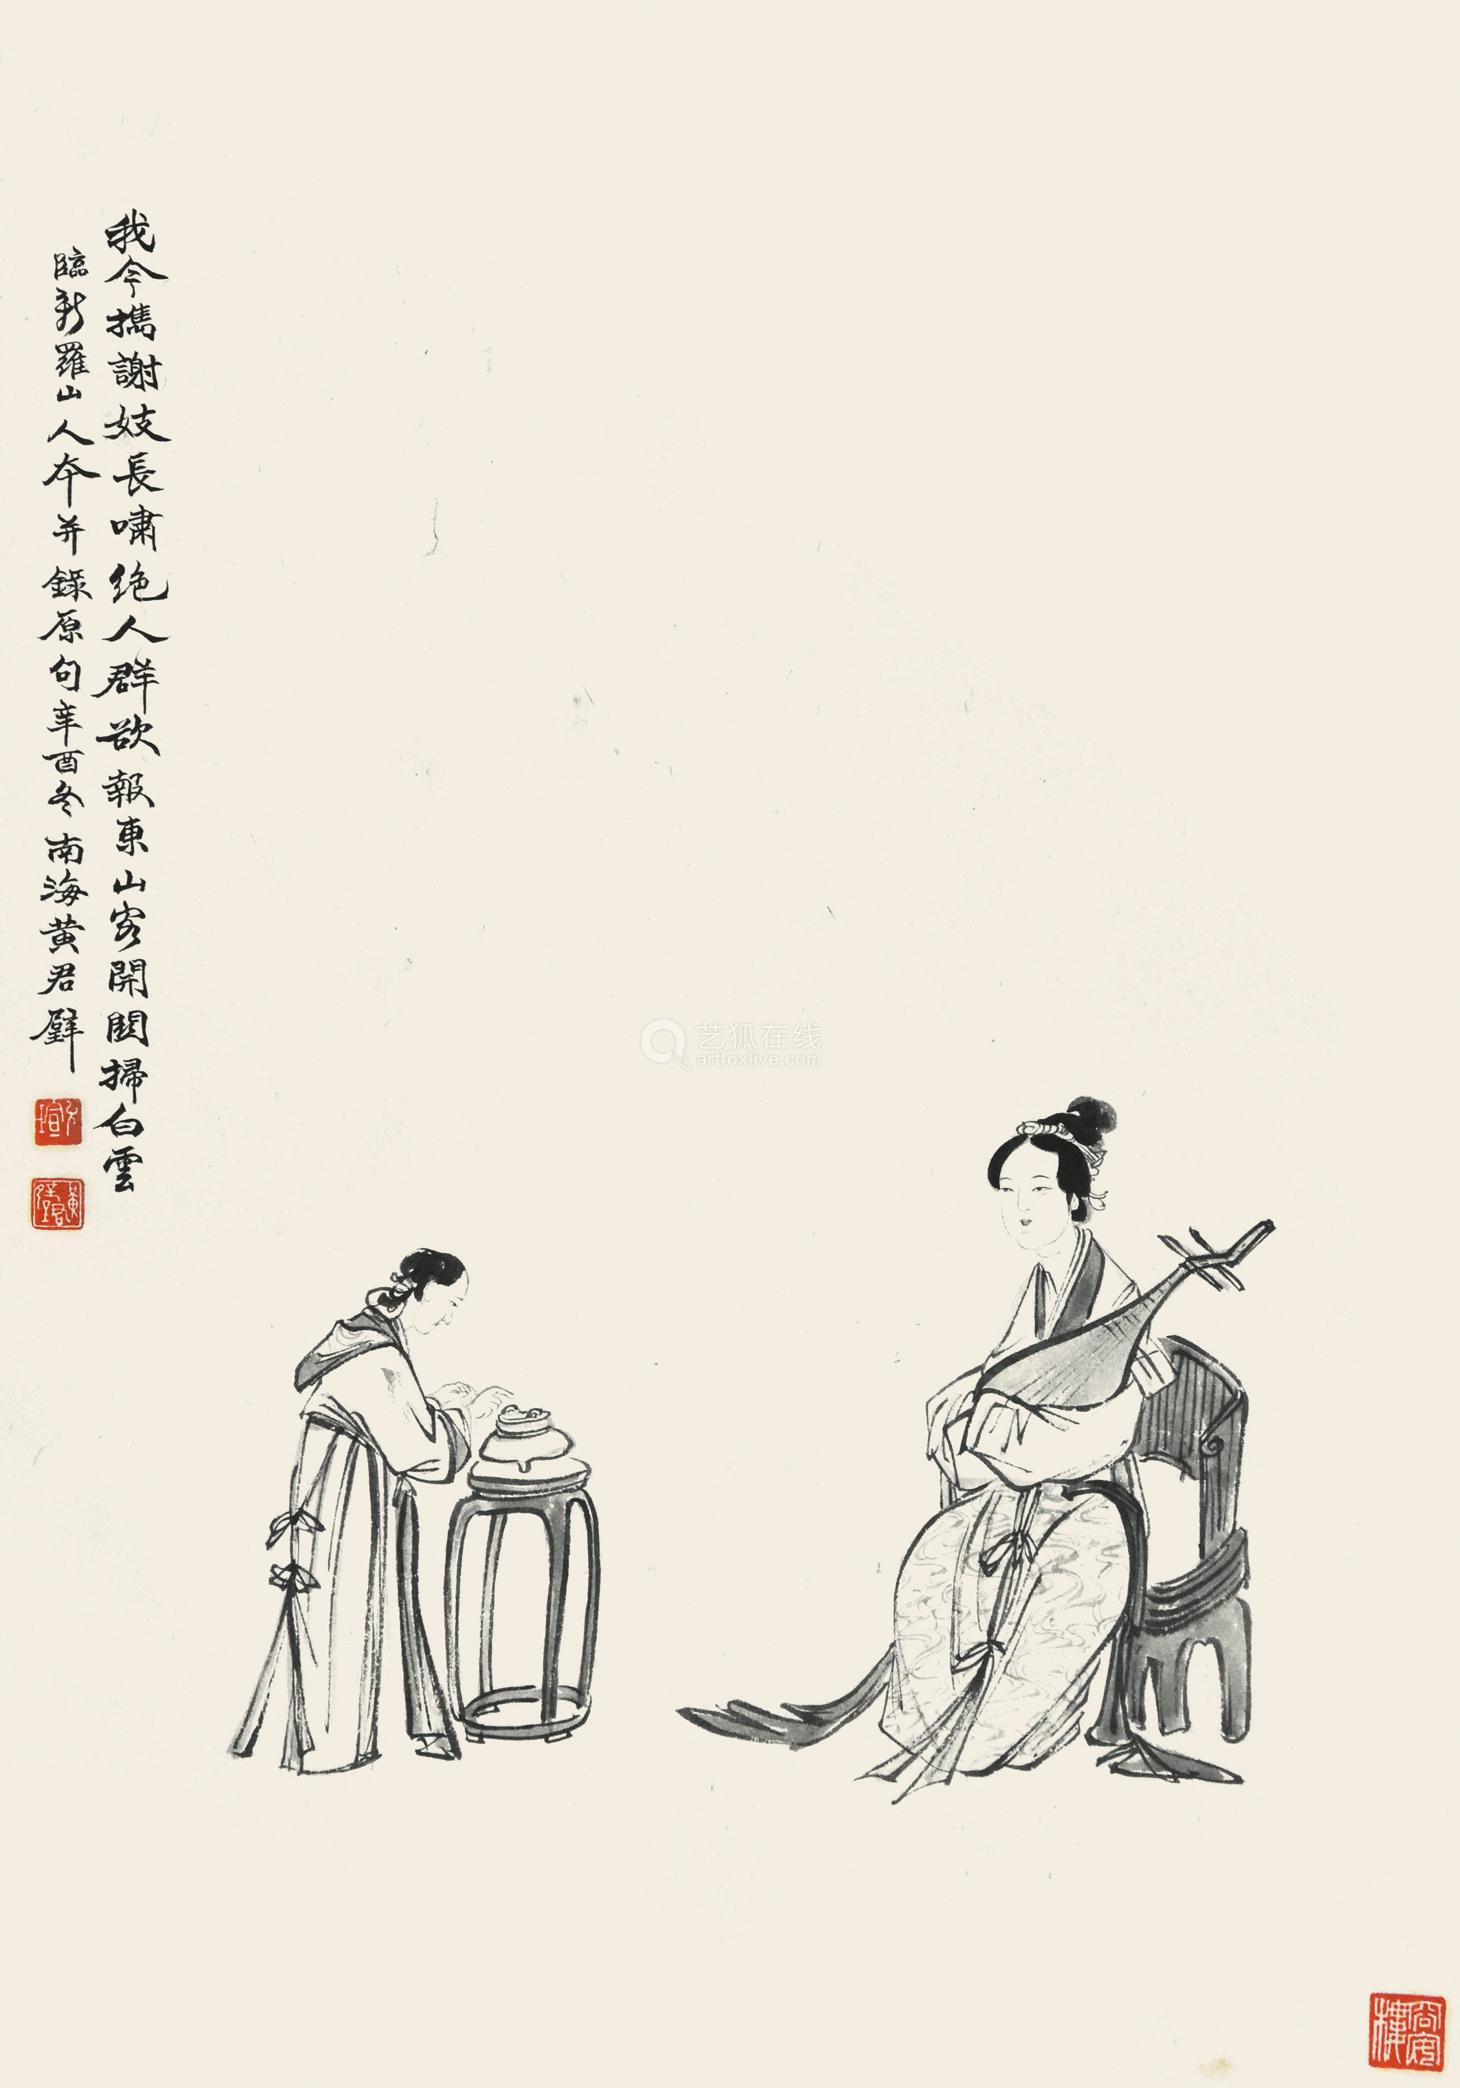 我今攜謝妓長嘯絶人群欲報東山客開関掃白雲
臨新羅山人本并錄原句辛酉冬南海黄君璧
艺狐在线
artfoxlive.com